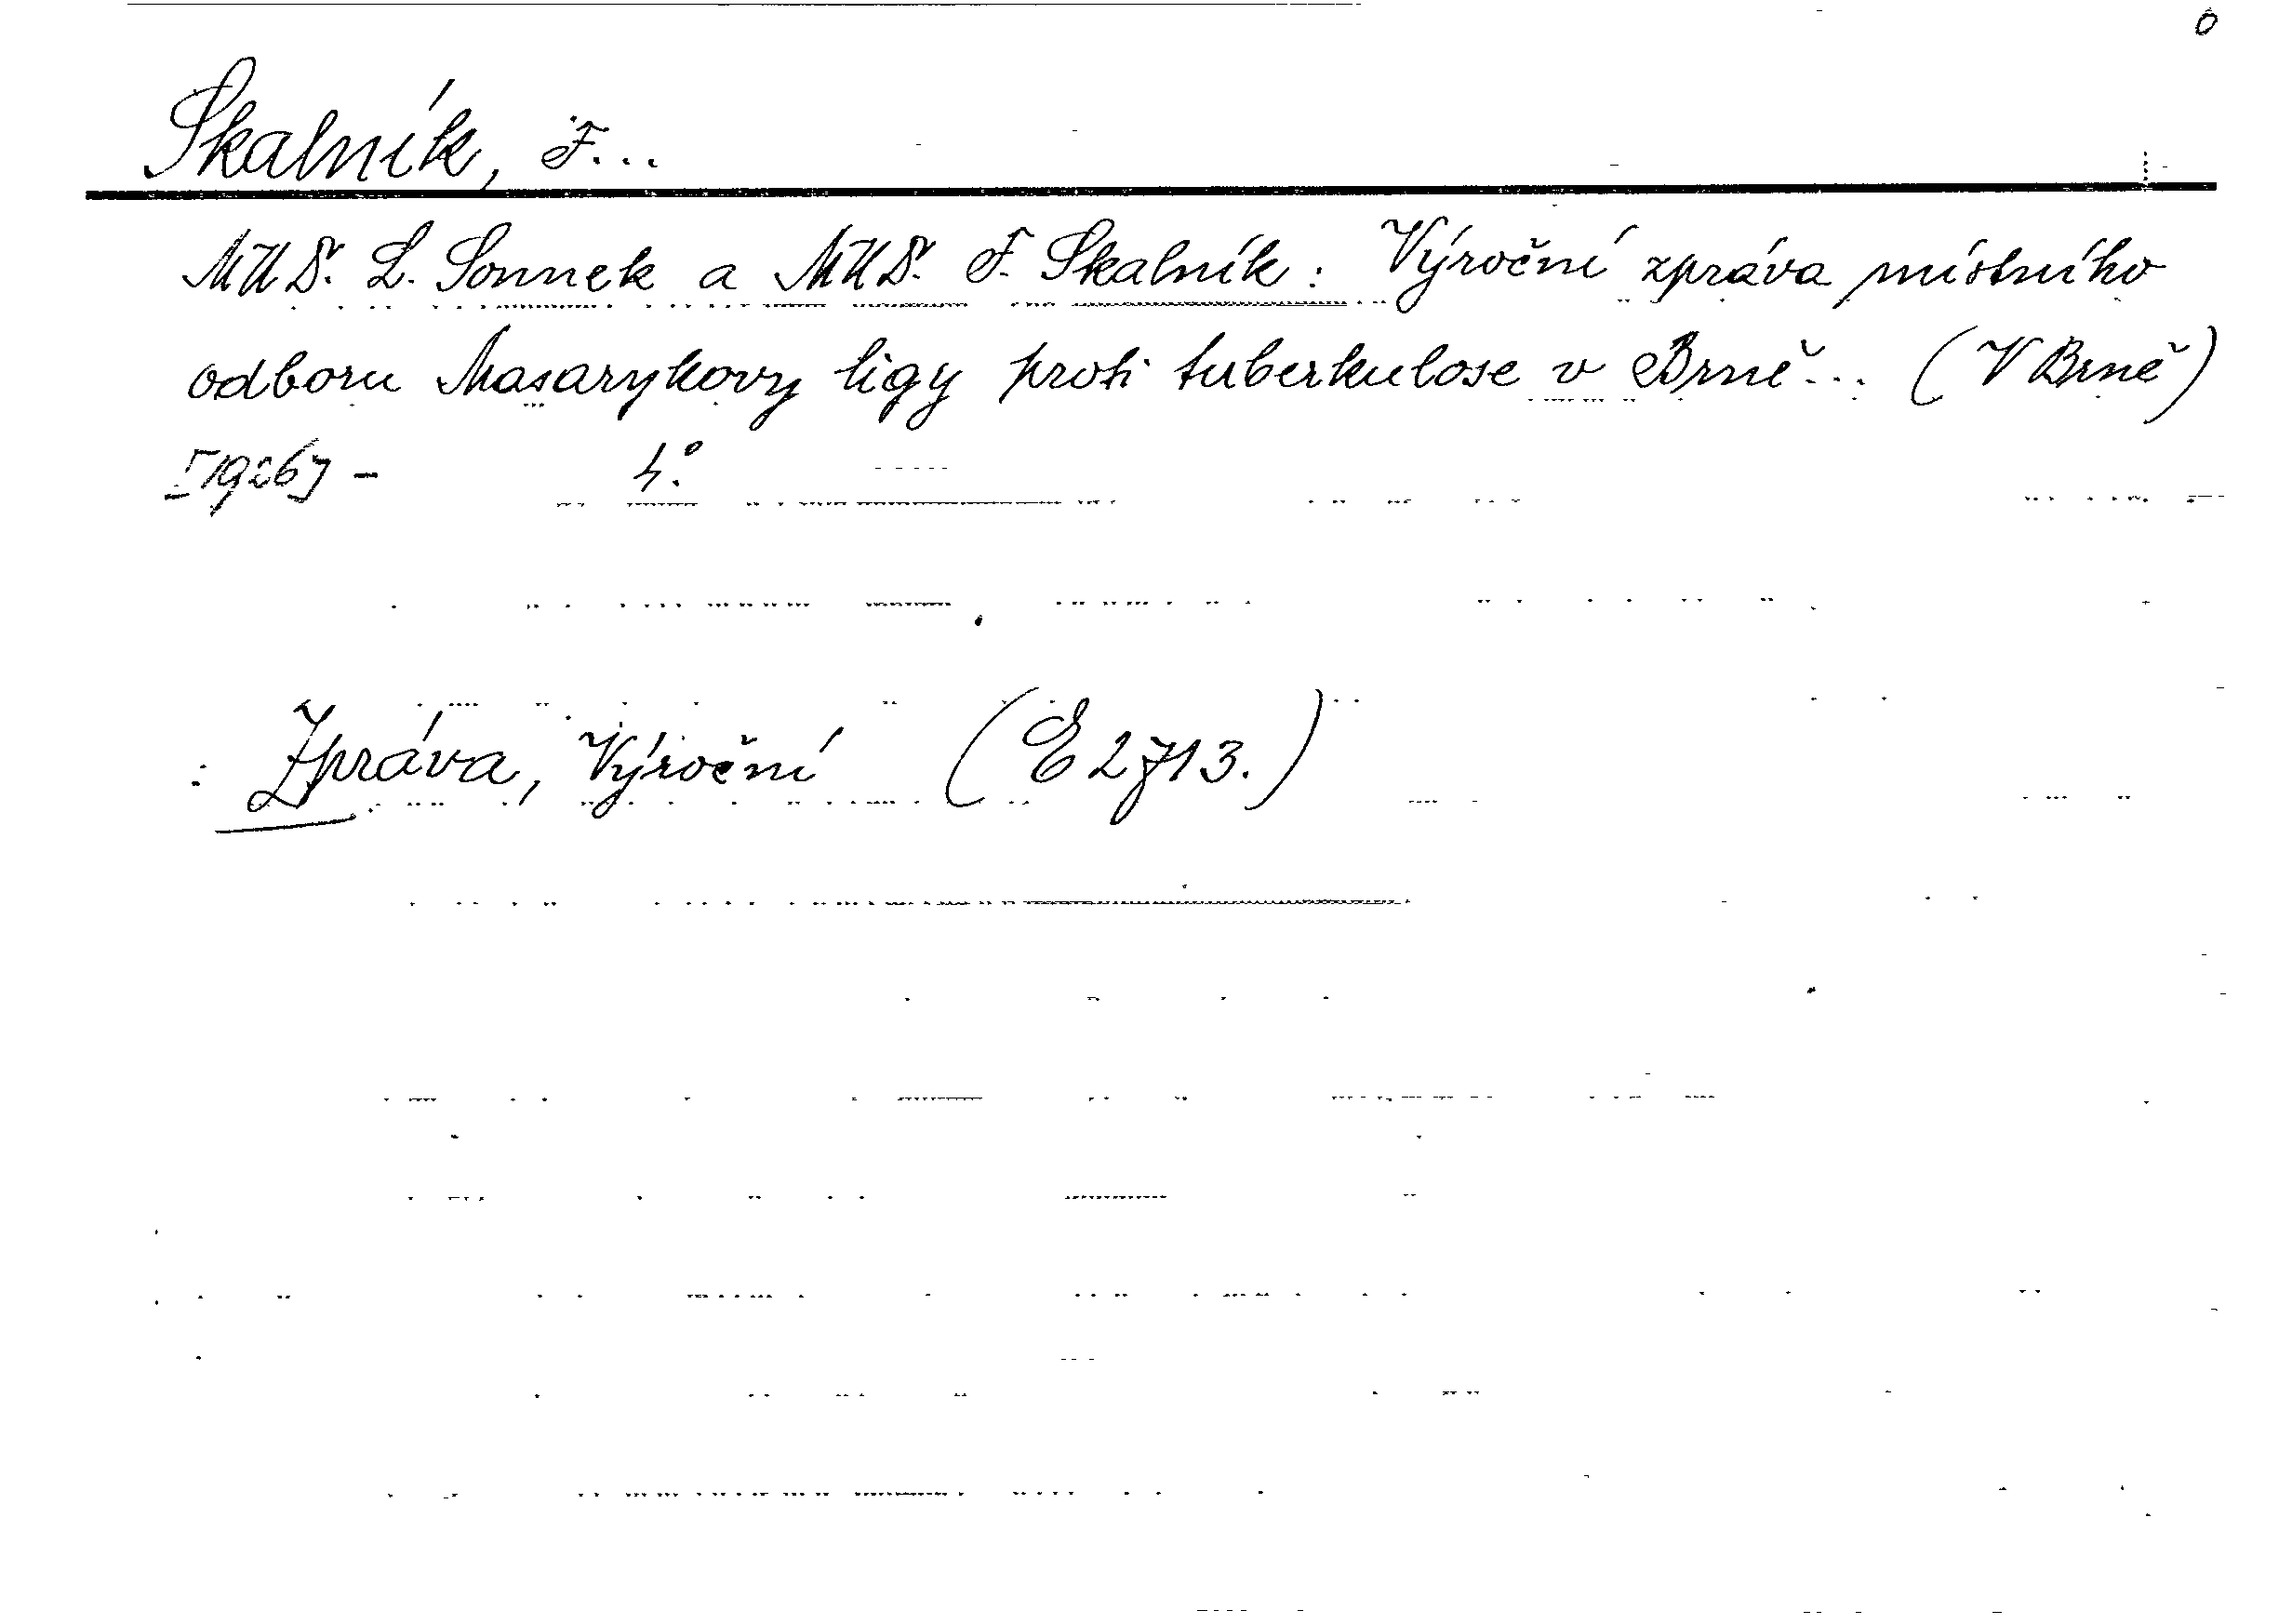 o
Skalník, F...
MUDr. L. Sonnek a MUDr. F. Skalník: Výroční zpráva místního
odboru Masarykovy ligy proti tuberkulose v Brně... (V Brně)
[1926] - 4°.
: Zpráva, Výroční (E 2713.)